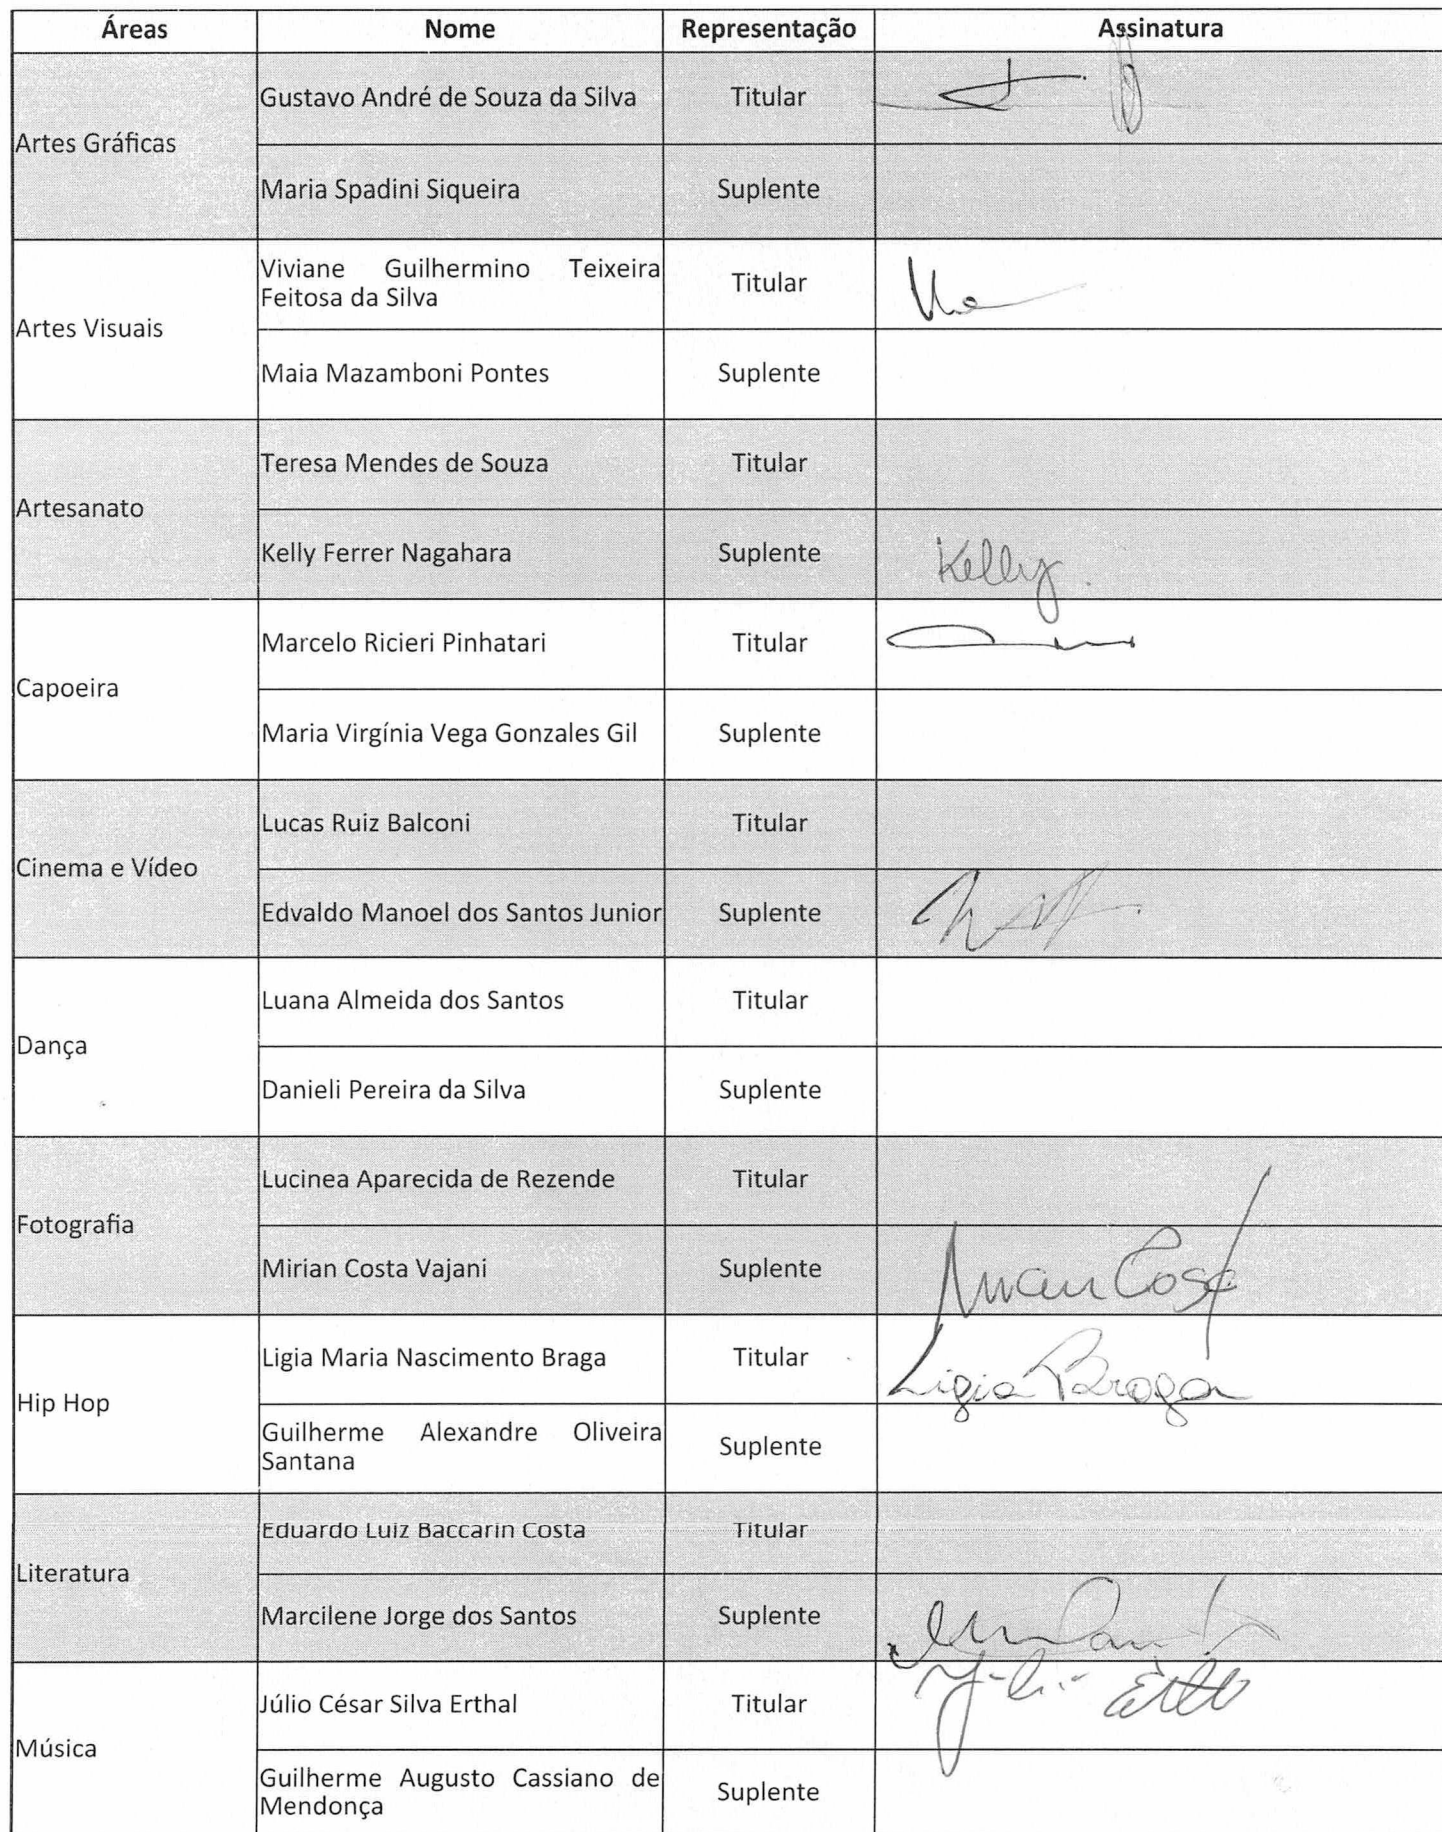 Áreas Nome Representação Assinatura
Artes Gráficas
Gustavo André de Souza da Silva Titular
Maria Spadini Siqueira Suplente
Artes Visuais
Viviane Guilhermino Teixeira
Feitosa da Silva Titular
Maia Mazamboni Pontes Suplente
Artesanato
Teresa Mendes de Souza Titular
Kelly Ferrer Nagahara Suplente Kelly
Capoeira
Marcelo Ricieri Pinhatari Titular
Maria Virgínia Vega Gonzales Gil Suplente
Cinema e Vídeo
Lucas Ruiz Balconi Titular
Edvaldo Manoel dos Santos Junior Suplente
Dança
Luana Almeida dos Santos Titular
Danieli Pereira da Silva Suplente
Fotografia
Lucinea Aparecida de Rezende Titular
Mirian Costa Vajani Suplente
Hip Hop
Ligia Maria Nascimento Braga Titular Ligia Braga
Guilherme Alexandre Oliveira
Santana Suplente
Literatura
Eduardo Luiz Baccarin Costa Titular
Marcilene Jorge dos Santos Suplente
Música
Júlio César Silva Erthal Titular
Guilherme Augusto Cassiano de
Mendonça Suplente